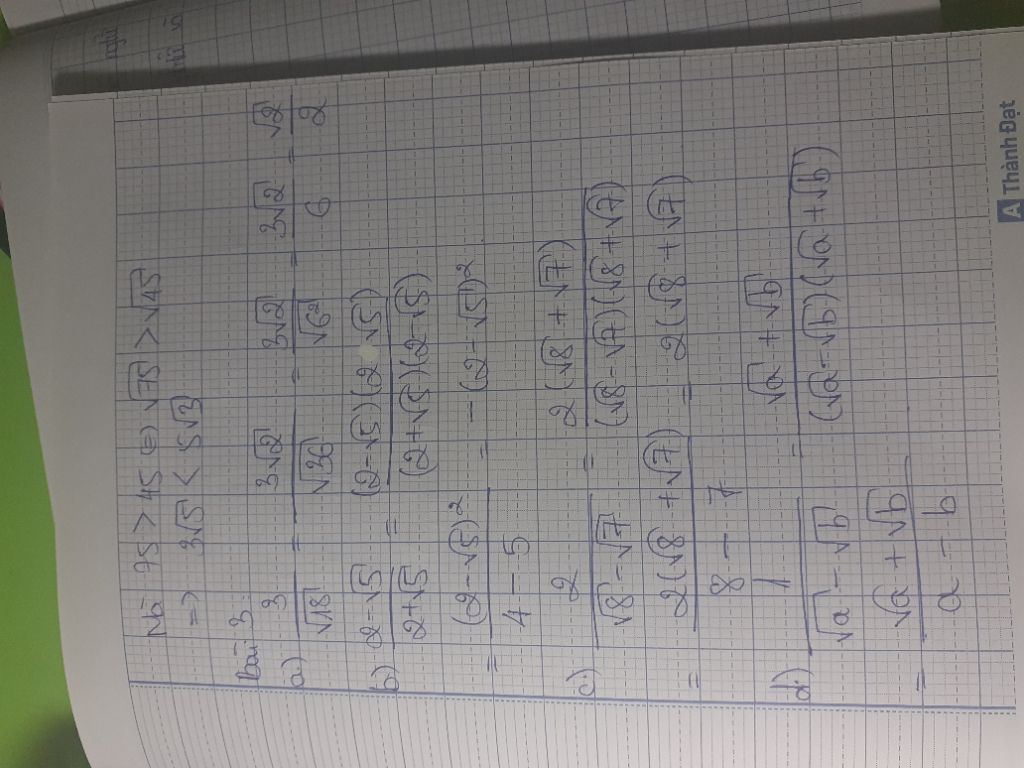 Mà 75 > 45 ⇔ √75 > √45
=> 3√5 < 5√3
Bài 3:
a) 3/√18 = 3√2/√36 = 3√2/√6² = 3√2/6 = √2/2
b) (2-√5)/(2+√5) = (2-√5)(2 √5)/(2+√5)(2-√5)
= (2-√5)²/(4-5) = -(2-√5)²
c) 2/(√8-√7) = 2(√8+√7)/(√8-√7)(√8+√7)
= 2(√8+√7)/(8-7) = 2(√8+√7)
d) 1/(√a-√b) = (√a+√b)/(√a-√b)(√a+√b)
= (√a+√b)/(a-b)
A Thành Đạt